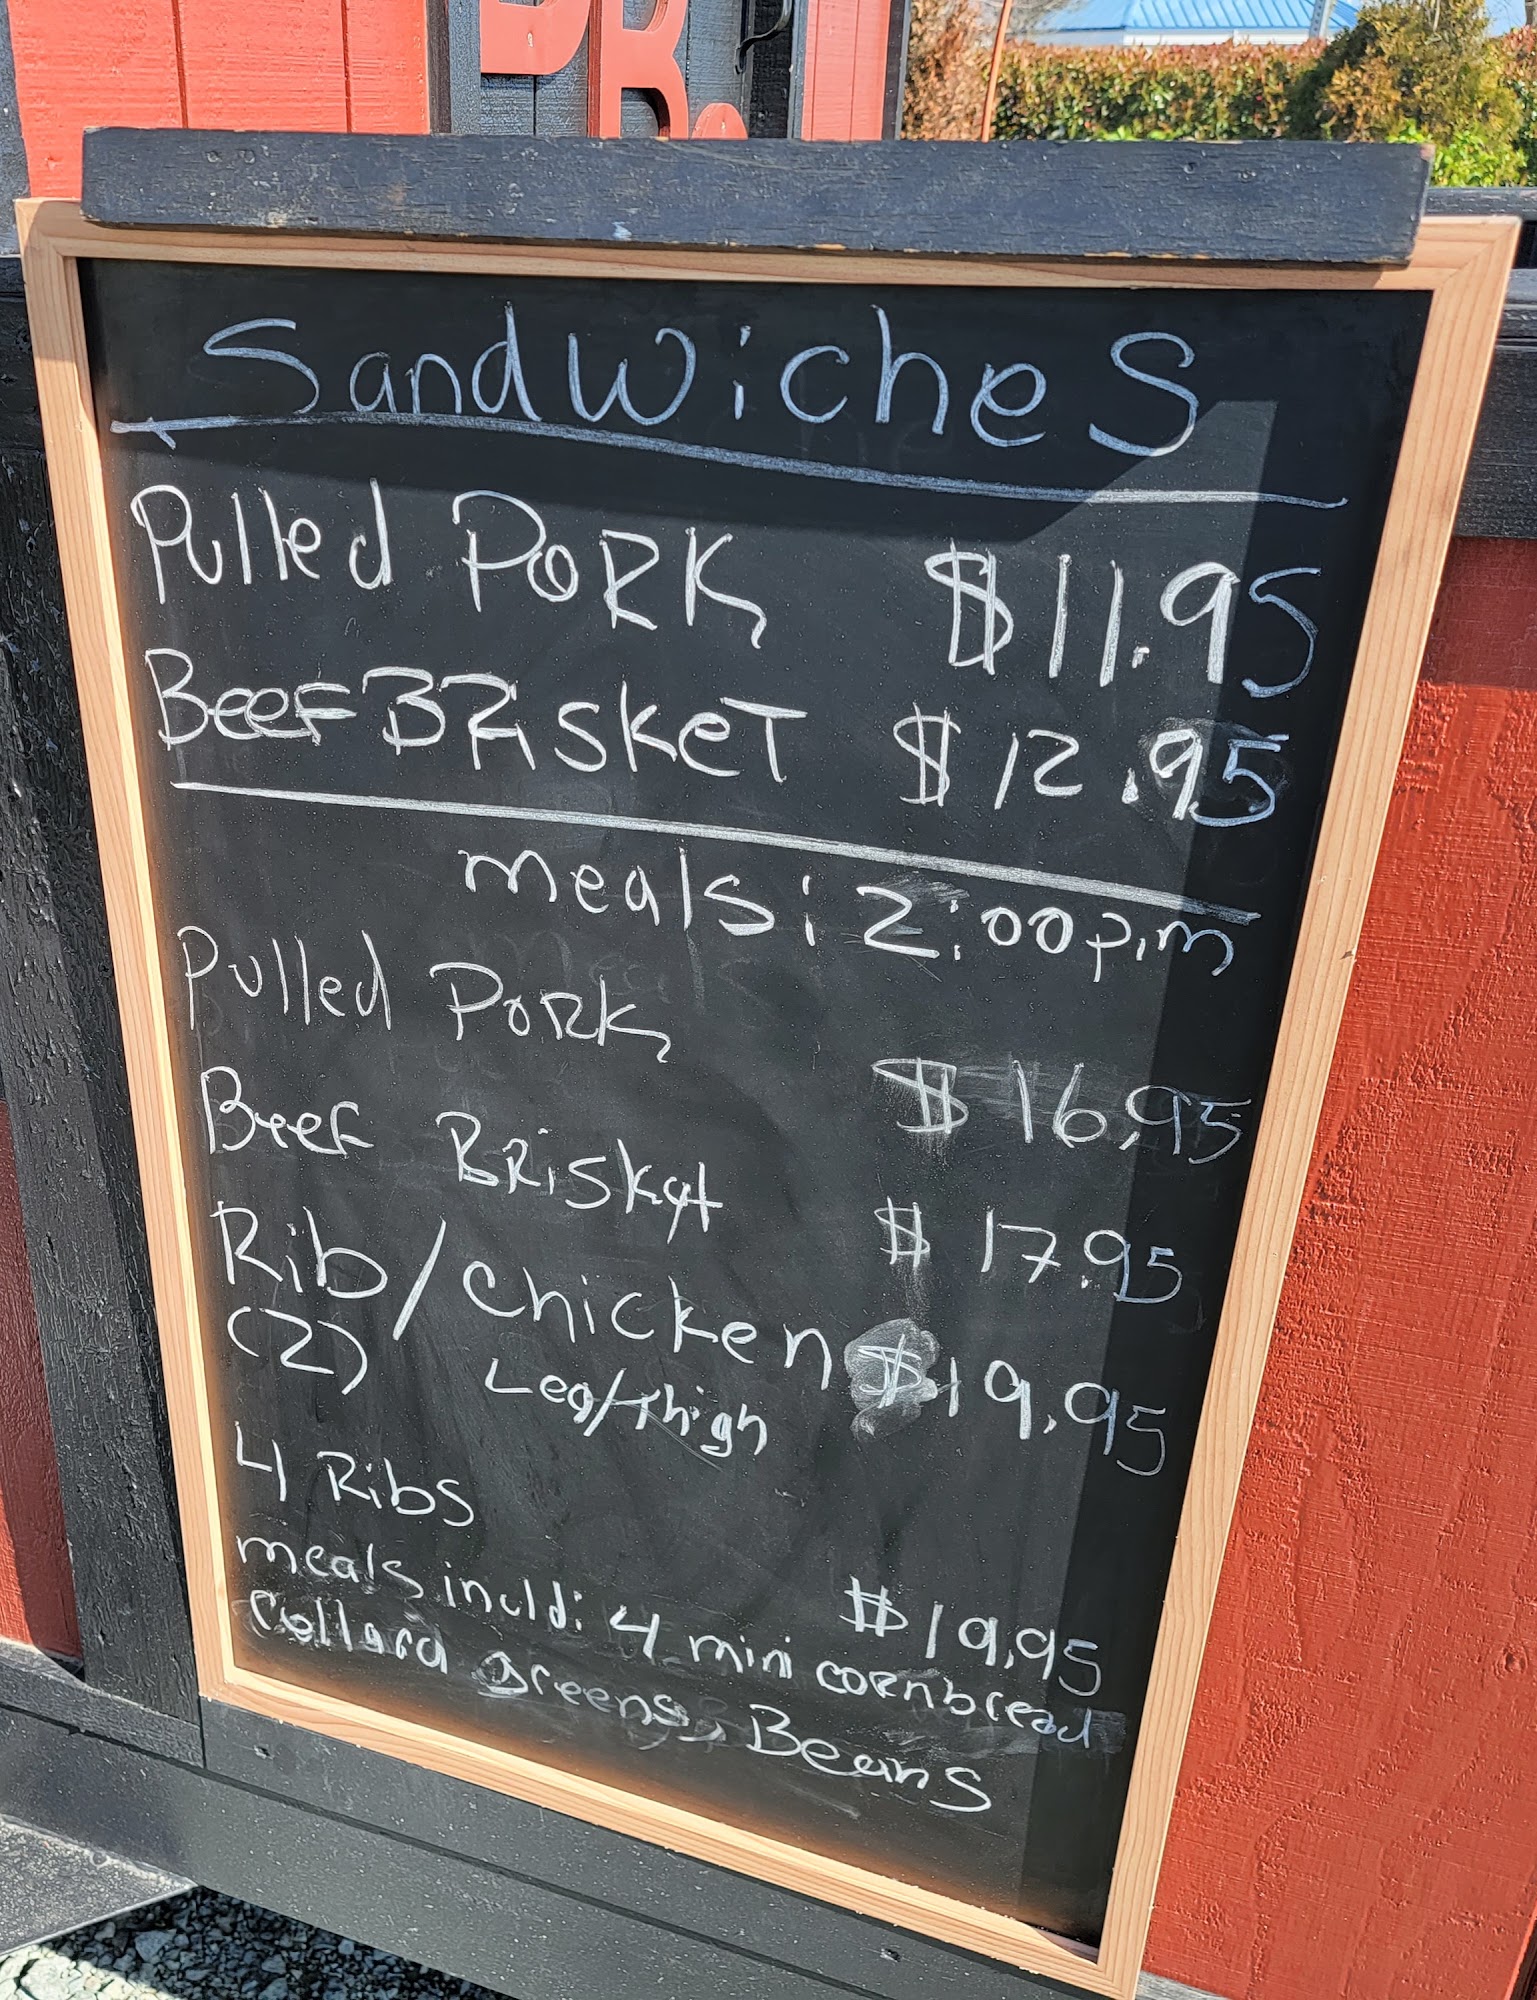 SandwicheS
Pulled PoRK $11.95
BeeF BRisKeT $12.95
meals: 2:00 p.m
Pulled PoRK $16.95
BeeF BRiSket $17.95
Rib/Chicken $19.95
(2) Leg/Thigh
4 RibS $19.95
meals inculd: 4 mini cornbread
Collard greens, BeanS